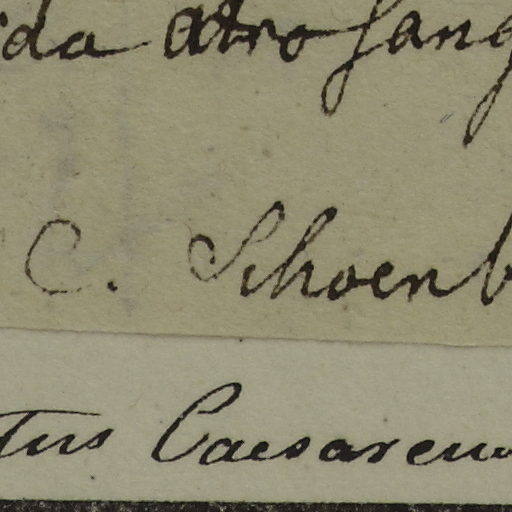 ida atrosang
C. Schoenb
tus Caesareus